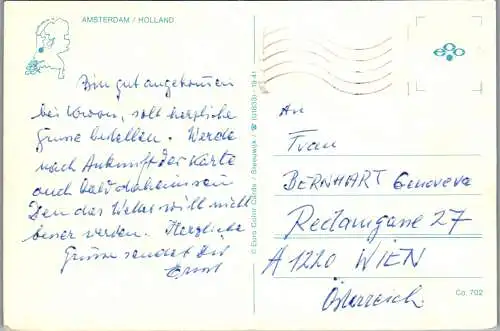 AMSTERDAM / HOLLAND
Bin gut angekommen
bei soll herzliche
Grüsse bestellen. Werde
nach Ankunft der Karte
auch bald daheim sein
Den das Wetter will nicht
besser werden. Herzliche
Grüsse sendet Dir
Ernst
© Euro Color Cards - Reeuwijk - ☎ (01833) - 19 41
An
Frau
BERNHART Genoveva
Reclamgasse 27
A 1220 WIEN
Österreich
Co. 702